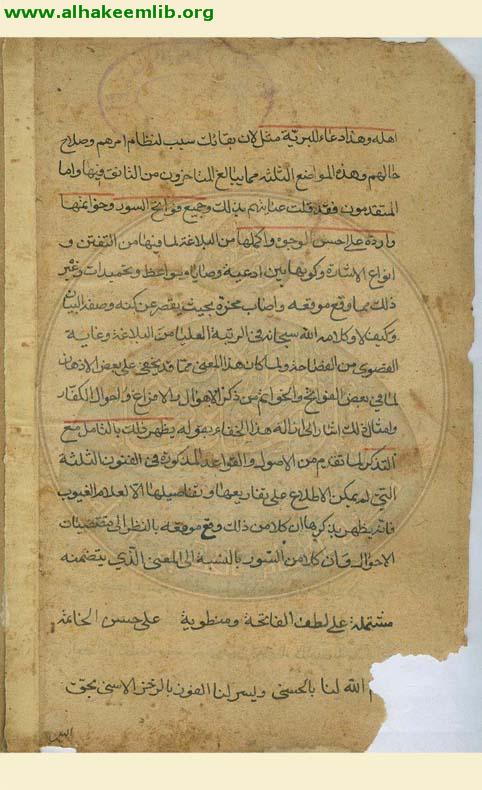 www.alhakeemlib.org
اهله وهذا دعاء للبرية مثل لان بقائك سبب لنظام امرهم وصلاح
حالهم وهذه المواضع الثلثة مما يبالغ المتاخرون من التانق فيها واما
المتقدمون فقد قلت عنايتهم بذلك وجميع فواتح السور وخواتمها
واردة على احسن الوجوه واكملها من البلاغة لما فيها من التفنن و
انواع الاشارة وكونها بين ادعية ووصايا ومواعظ وتحميدات وغير
ذلك مما وقع موقعه واصاب محزه بحيث يقصر عن كنه وصفه البيان
وكيف لا وكلام الله سبحانه في الرتبة العليا من البلاغة وغاية
القصوى من الفصاحة ولما كان هذا المعنى مما قد يخفى على بعض الاذهان
لما في بعض الفواتح والخواتم من ذكر الاهوال والافزاع واحوال الكفار
وامثال ذلك اشار الى ازالة هذا الخفاء بقوله يظهر ذلك بالتامل مع
التذكر لما تقدم من الاصول والقواعد المذكورة في الفنون الثلثة
التي لم يمكن الاطلاع على تفاريعها وتفاصيلها الا لعلام الغيوب
فانه يظهر بتذكرها ان كلا من ذلك وقع موقعه بالنظر الى مقتضيات
الاحوال وان كلا من السور بالنسبة الى المعنى الذي يتضمنه
مشتملة على لطف الفاتحة ومنطوية على حسن الخاتمة
الله لنا بالحسنى ويسر لنا الفوز بالذخر الاسنى بحق